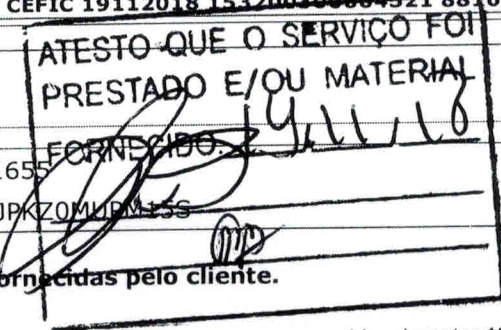 CEFIC 19112018
ATESTO QUE O SERVIÇO FOI
PRESTADO E/OU MATERIAL
FORNECIDO. 19/11/18
1655
ornecidas pelo cliente.